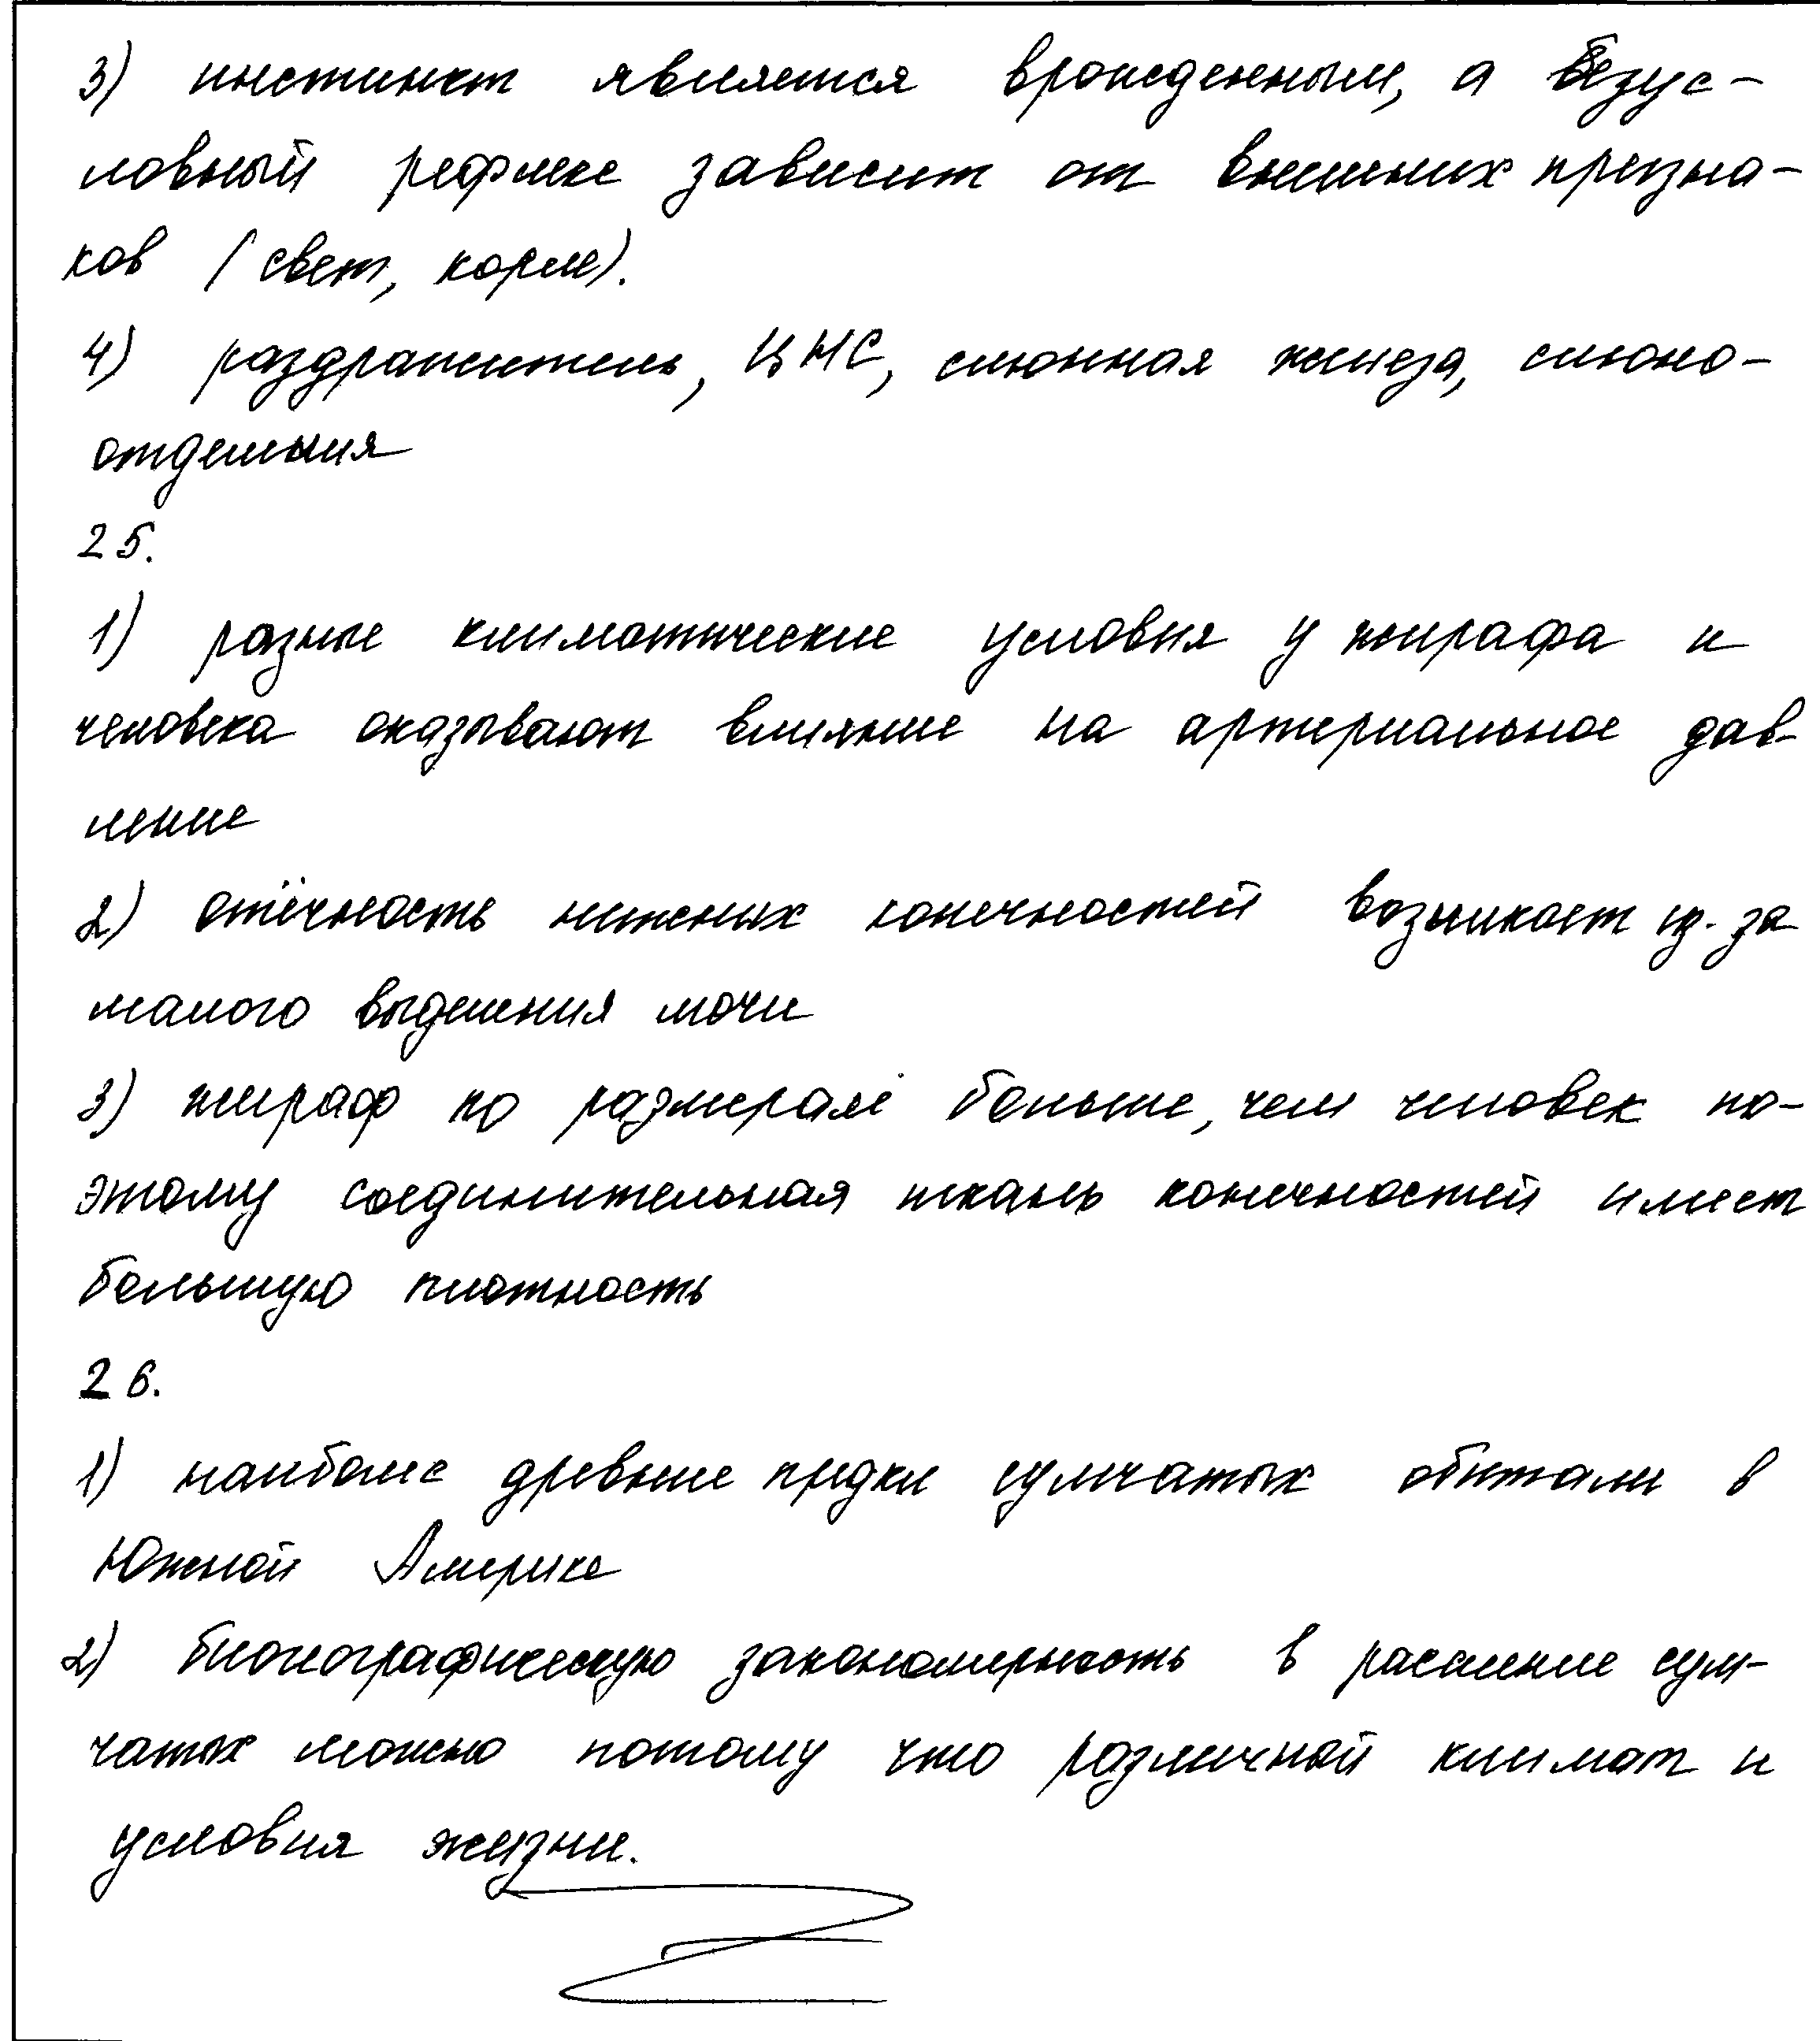 3) инстинкт является врожденным, а безус-
ловный рефлекс зависит от внешних призна-
ков (свет, корм).
4) раздражитель, ЦНС, слюнная железа, слюно-
отделения
25.
1) разные климатические условия у жирафа и
человека оказывают влияние на артериальное дав-
ление
2) отёчность нижних конечностей возникает из-за
малого выделения мочи
3) жираф по размерам больше, чем человек по-
этому соединительная ткань конечностей имеет
большую плотность
26.
1) наиболее древние предки сумчатых обитали в
Южной Америке
2) биогеографическую закономерность в расселение сум-
чатых можно потому что различный климат и
условия жизни.